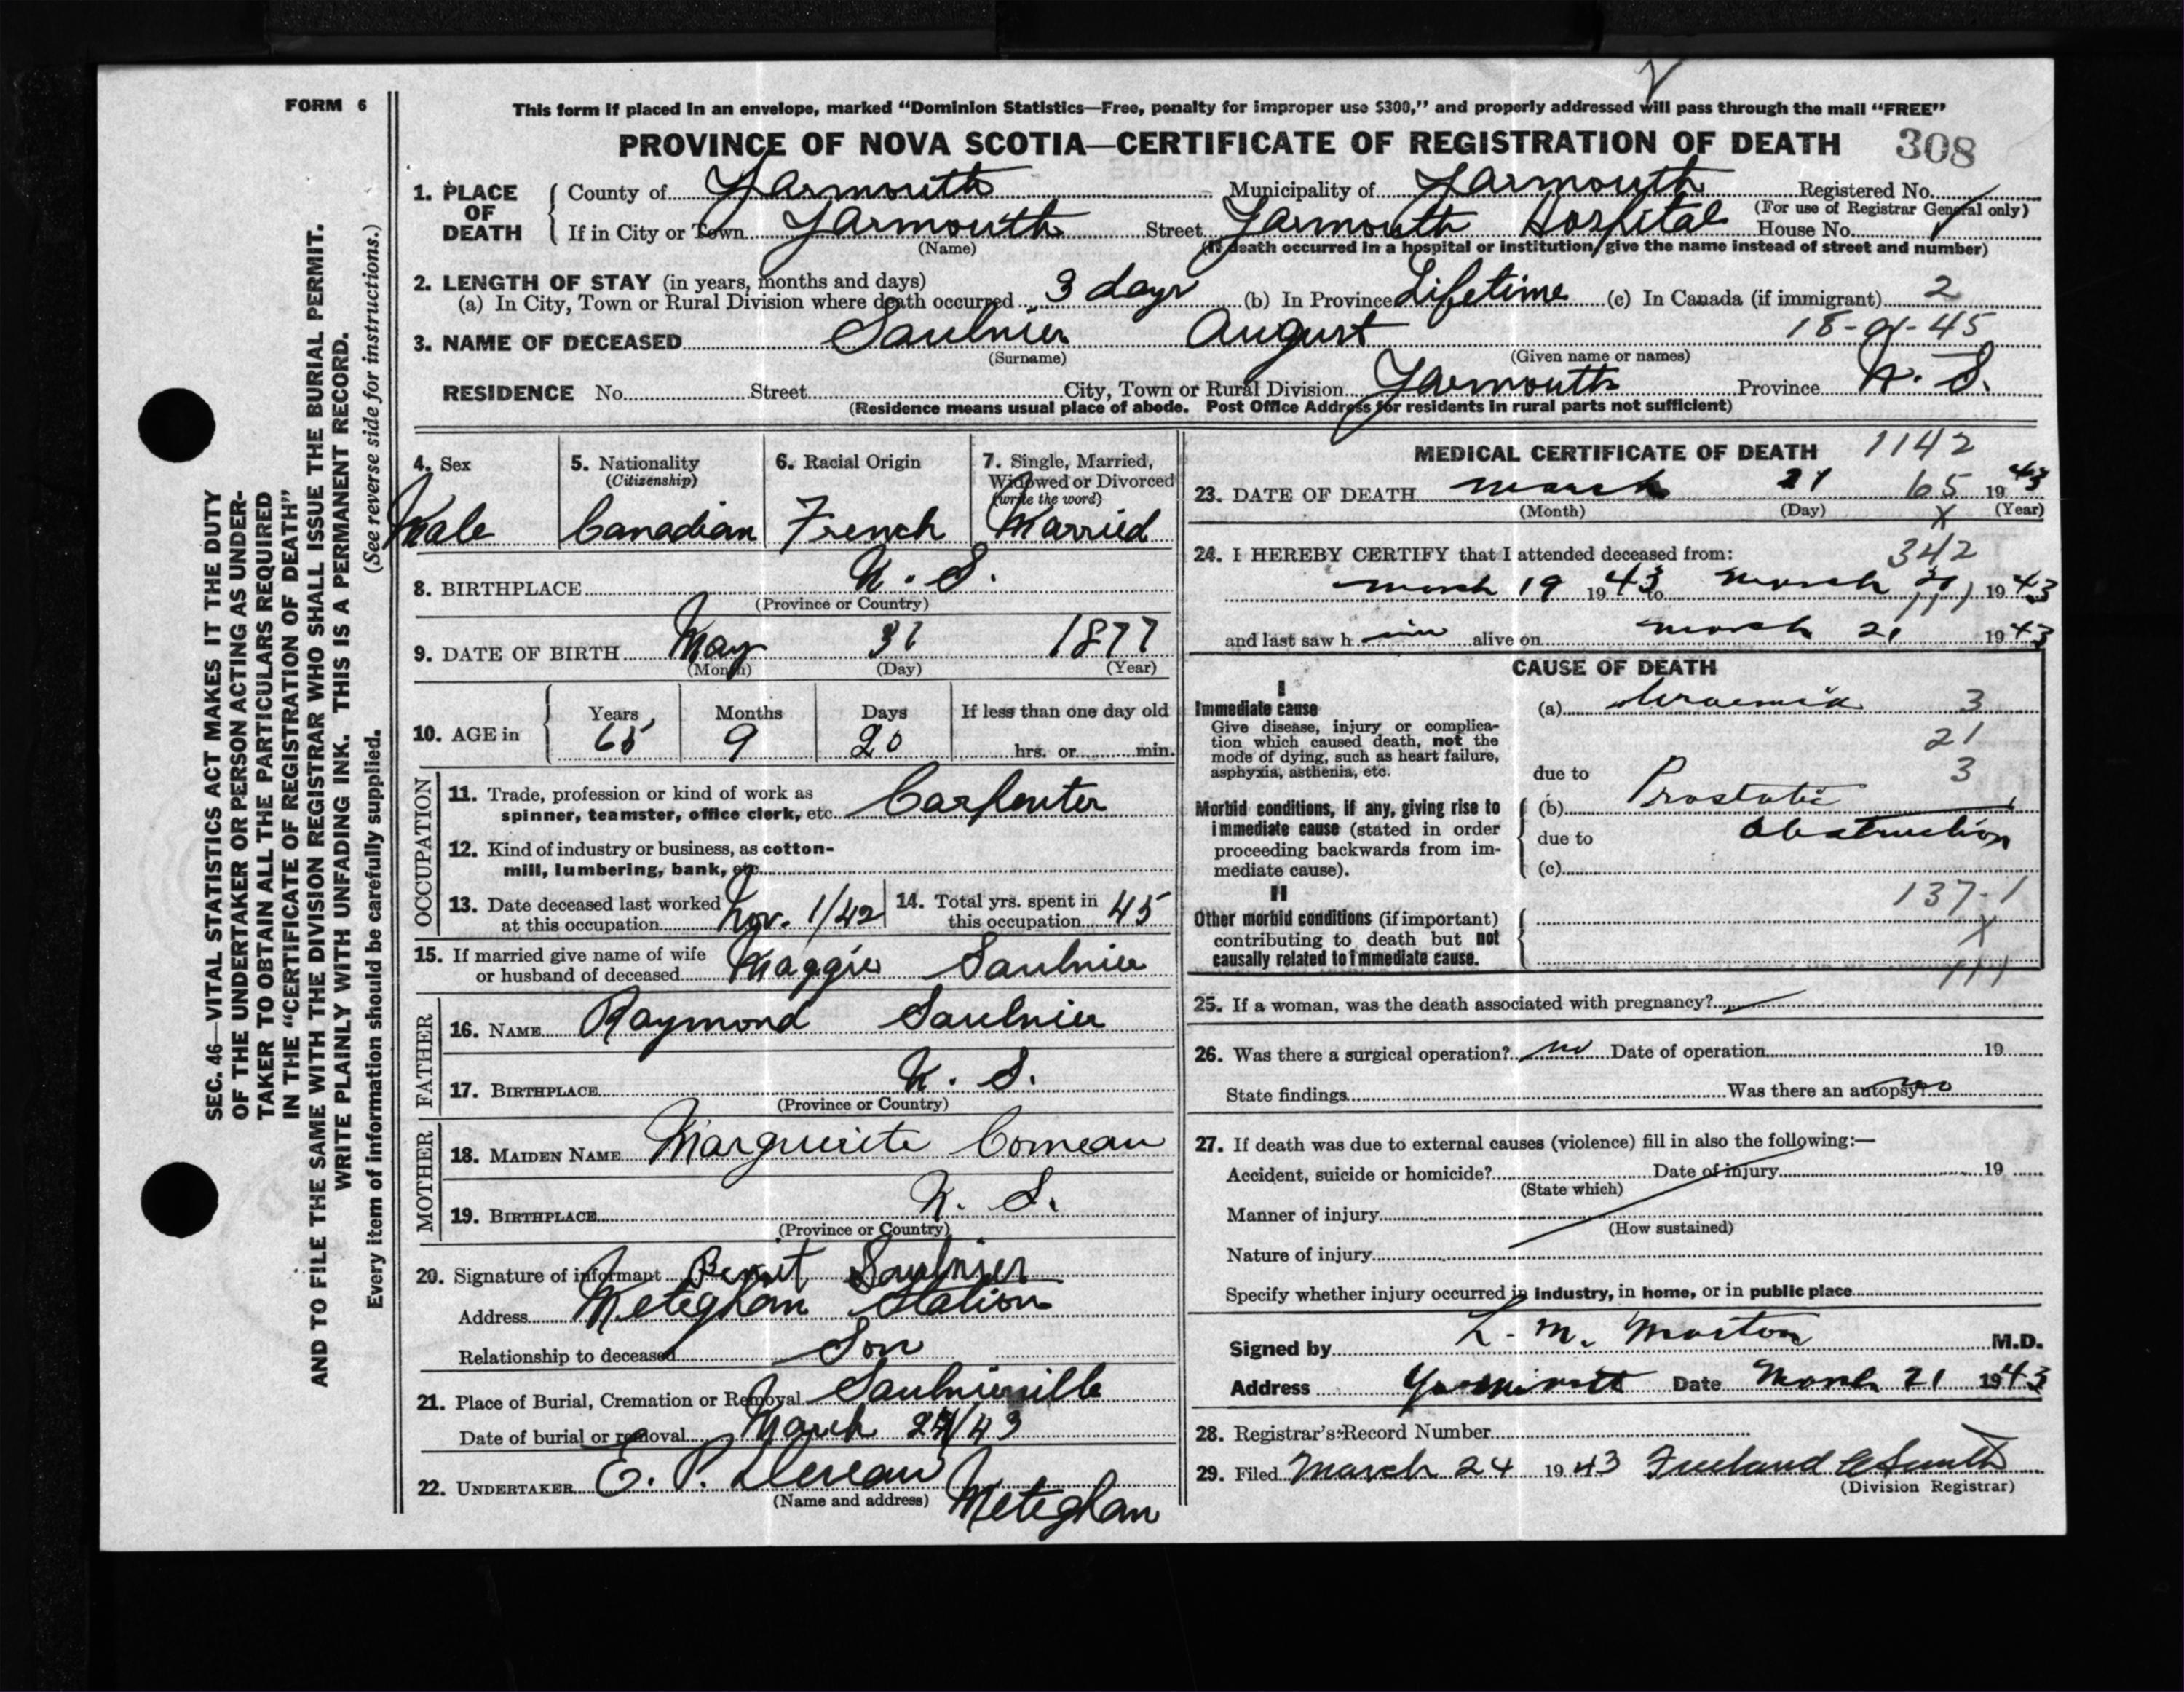 FORM 6
This form if placed in an envelope, marked “Dominion Statistics—Free, penalty for improper use $300,” and properly addressed will pass through the mail “FREE”
PROVINCE OF NOVA SCOTIA—CERTIFICATE OF REGISTRATION OF DEATH 308
1. PLACE OF DEATH
County of Yarmouth Municipality of Yarmouth Registered No.
(For use of Registrar General only)
If in City or Town Yarmouth Street Yarmouth Hospital House No.
(Name) (If death occurred in a hospital or institution, give the name instead of street and number)
2. LENGTH OF STAY (in years, months and days)
(a) In City, Town or Rural Division where death occurred 3 days (b) In Province Lifetime (c) In Canada (if immigrant) 2
18-01-45
3. NAME OF DECEASED Saulnier August
(Surname) (Given name or names)
RESIDENCE No. Street City, Town or Rural Division Yarmouth Province N. S.
(Residence means usual place of abode. Post Office Address for residents in rural parts not sufficient)
4. Sex Male
5. Nationality (Citizenship) Canadian
6. Racial Origin French
7. Single, Married, Widowed or Divorced (write the word) Married
8. BIRTHPLACE N. S.
(Province or Country)
9. DATE OF BIRTH May 31 1877
(Month) (Day) (Year)
10. AGE in Years 65 Months 9 Days 20 If less than one day old hrs. or min.
OCCUPATION
11. Trade, profession or kind of work as
spinner, teamster, office clerk, etc. Carpenter
12. Kind of industry or business, as cotton-
mill, lumbering, bank, etc.
13. Date deceased last worked
at this occupation Nov. 1/42
14. Total yrs. spent in
this occupation 45
15. If married give name of wife
or husband of deceased Maggie Saulnier
FATHER
16. NAME Raymond Saulnier
17. BIRTHPLACE N. S.
(Province or Country)
MOTHER
18. MAIDEN NAME Marguerite Comeau
19. BIRTHPLACE N. S.
(Province or Country)
20. Signature of informant Benoit Saulnier
Address Meteghan Station
Relationship to deceased Son
21. Place of Burial, Cremation or Removal Saulnierville
Date of burial or removal March 24/43
22. UNDERTAKER E. P.
(Name and address) Meteghan
MEDICAL CERTIFICATE OF DEATH 1142
23. DATE OF DEATH March 21 65 1943
(Month) (Day) (Year)
X
24. I HEREBY CERTIFY that I attended deceased from: 342
March 19 1943 to March 21 1943
111
and last saw him alive on March 21 1943
CAUSE OF DEATH
I
Immediate cause
Give disease, injury or complica-
tion which caused death, not the
mode of dying, such as heart failure,
asphyxia, asthenia, etc.
(a) Uraemia 3
21
due to 3
Morbid conditions, if any, giving rise to
immediate cause (stated in order
proceeding backwards from im-
mediate cause).
(b) Prostatic
due to Obstruction
(c)
II
137-1
Other morbid conditions (if important)
contributing to death but not
causally related to immediate cause.
X
111
25. If a woman, was the death associated with pregnancy?
26. Was there a surgical operation? no Date of operation 19
State findings Was there an autopsy? no
27. If death was due to external causes (violence) fill in also the following:—
Accident, suicide or homicide? Date of injury 19
(State which)
Manner of injury
(How sustained)
Nature of injury
Specify whether injury occurred in industry, in home, or in public place
Signed by L. M. Morton M.D.
Address Yarmouth Date March 21 1943
28. Registrar's Record Number
29. Filed March 24 1943 Freeland A Smith
(Division Registrar)
SEC. 46—VITAL STATISTICS ACT MAKES IT THE DUTY
OF THE UNDERTAKER OR PERSON ACTING AS UNDER-
TAKER TO OBTAIN ALL THE PARTICULARS REQUIRED
IN THE “CERTIFICATE OF REGISTRATION OF DEATH”
AND TO FILE THE SAME WITH THE DIVISION REGISTRAR WHO SHALL ISSUE THE BURIAL PERMIT.
WRITE PLAINLY WITH UNFADING INK. THIS IS A PERMANENT RECORD.
(See reverse side for instructions.)
Every item of information should be carefully supplied.